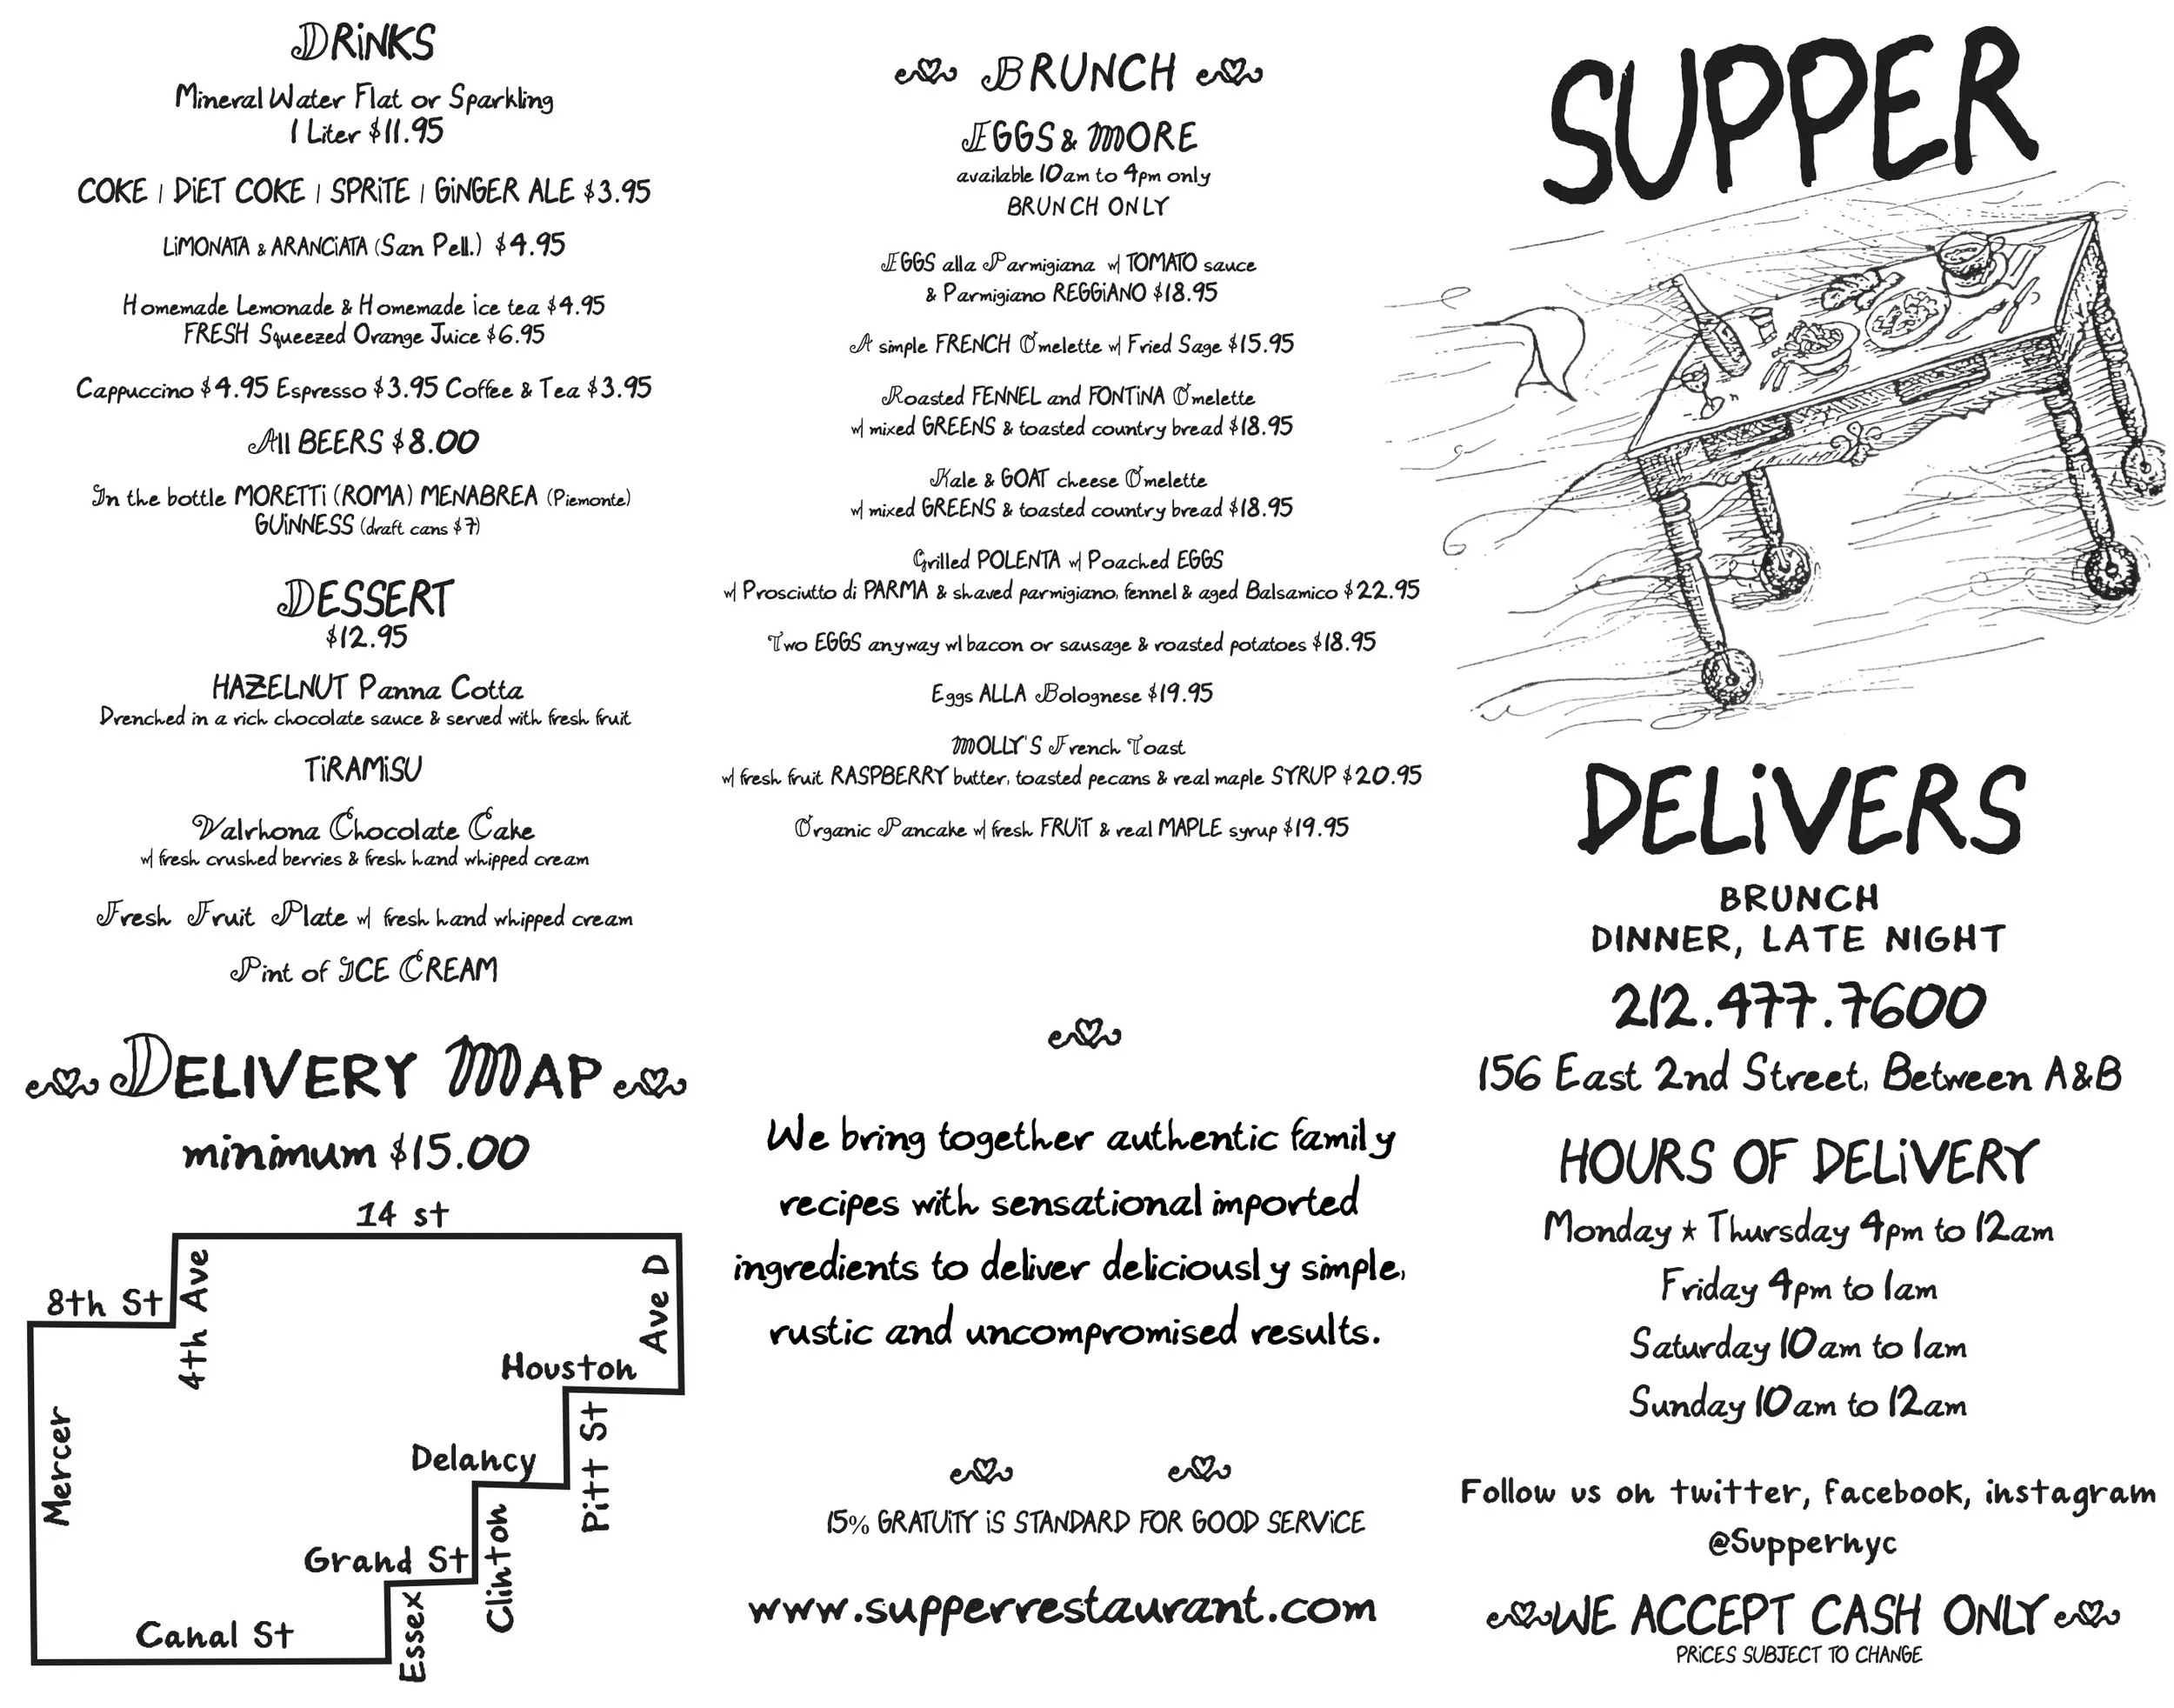 DRiNKS
Mineral Water Flat or Sparkling
1 Liter $11.95
COKE | DiET COKE | SPRiTE | GiNGER ALE $3.95
LiMONATA & ARANCiATA (San Pell.) $4.95
Homemade Lemonade & Homemade ice tea $4.95
FRESH Squeezed Orange Juice $6.95
Cappuccino $4.95 Espresso $3.95 Coffee & Tea $3.95
All BEERS $8.00
In the bottle MORETTi (ROMA) MENABREA (Piemonte)
GUiNNESS (draft cans $7)
DESSERT
$12.95
HAZELNUT Panna Cotta
Drenched in a rich chocolate sauce & served with fresh fruit
TiRAMiSU
Valrhona Chocolate Cake
w/ fresh crushed berries & fresh hand whipped cream
Fresh Fruit Plate w/ fresh hand whipped cream
Pint of ICE CREAM
DELIVERY MAP
minimum $15.00
14 st
8th St
4th Ave
Ave D
Houston
Mercer
Delancy
Pitt St
Grand St
Clinton
Canal St
Essex
BRUNCH
EGGS & MORE
available 10am to 4pm only
BRUNCH ONLY
EGGS alla Parmigiana w/ TOMATO sauce
& Parmigiano REGGiANO $18.95
A simple FRENCH Omelette w/ Fried Sage $15.95
Roasted FENNEL and FONTiNA Omelette
w/ mixed GREENS & toasted country bread $18.95
Kale & GOAT cheese Omelette
w/ mixed GREENS & toasted country bread $18.95
Grilled POLENTA w/ Poached EGGS
w/ Prosciutto di PARMA & shaved parmigiano, fennel & aged Balsamico $22.95
Two EGGS anyway w/ bacon or sausage & roasted potatoes $18.95
Eggs ALLA Bolognese $19.95
MOLLY'S French Toast
w/ fresh fruit RASPBERRY butter, toasted pecans & real maple SYRUP $20.95
Organic Pancake w/ fresh FRUiT & real MAPLE syrup $19.95
We bring together authentic family
recipes with sensational imported
ingredients to deliver deliciously simple,
rustic and uncompromised results.
15% GRATUiTY iS STANDARD FOR GOOD SERViCE
www.supperrestaurant.com
SUPPER
DELiVERS
BRUNCH
DINNER, LATE NIGHT
212.477.7600
156 East 2nd Street, Between A&B
HOURS OF DELiVERY
Monday ★ Thursday 4pm to 12am
Friday 4pm to 1am
Saturday 10am to 1am
Sunday 10am to 12am
Follow us on twitter, facebook, instagram
@Suppernyc
WE ACCEPT CASH ONLY
PRiCES SUBJECT TO CHANGE